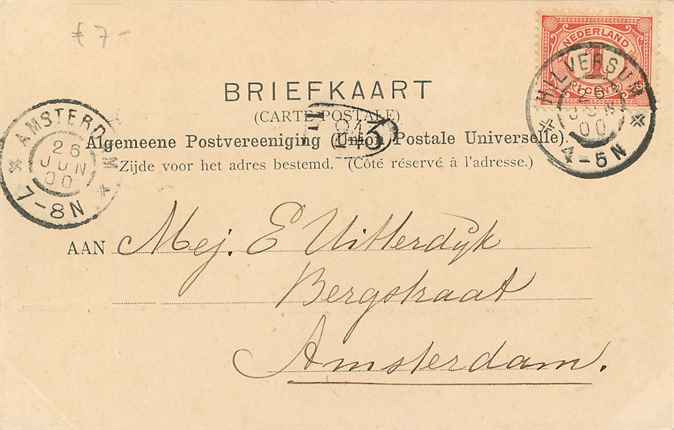 £ 7 -
NEDERLAND
1
HILVERSUM
26
JUN
00
4-5N
BRIEFKAART
(CARTE POSTALE)
Algemeene Postvereeniging (Union Postale Universelle)
Zijde voor het adres bestemd. (Côté réservé à l'adresse.)
AMSTERDAM
26
JUN
00
7-8N
AAN Mej. E Uitterdijk
Bergstraat
Amsterdam.